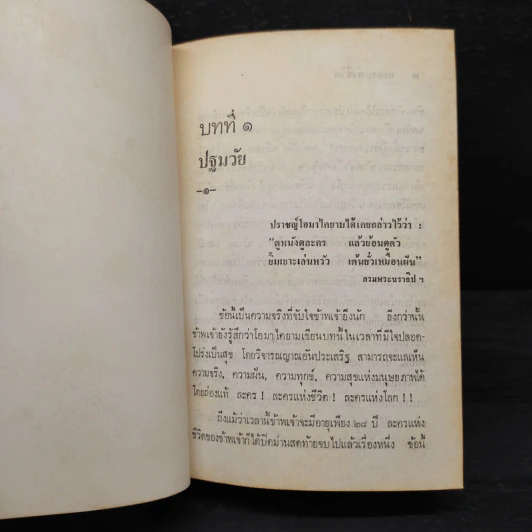 บทที่ ๑
ปฐมวัย
-๑-
ปราชญ์โอมาไคยามได้เคยกล่าวไว้ว่า :
"ดูหนังดูละคร แล้วย้อนดูตัว
ยิ้มเยาะเล่นหวัว เต้นยั่วเหมือนฝัน"
กรมพระนราธิป ฯ
ข้อนี้เป็นความจริงที่จับใจข้าพเจ้ายิ่งนัก ยิ่งกว่านั้น
ข้าพเจ้ายังรู้สึกว่าโอมาไคยามเขียนบทนี้ในเวลาที่มีใจปลอด-
โปร่งเป็นสุข โดยวิจารณญาณอันประเสริฐ สามารถจะแลเห็น
ความจริง, ความฝัน, ความทุกข์, ความสุขแห่งมนุษยภาพได้
โดยถ่องแท้ ละคร ! ละครแห่งชีวิต ! ละครแห่งโลก ! !
ถึงแม้ว่าเวลานี้ข้าพเจ้าจะมีอายุเพียง ๒๘ ปี ละครแห่ง
ชีวิตของข้าพเจ้าก็ได้ปิดม่านสุดท้ายจบไปแล้วเรื่องหนึ่ง ข้อนี้